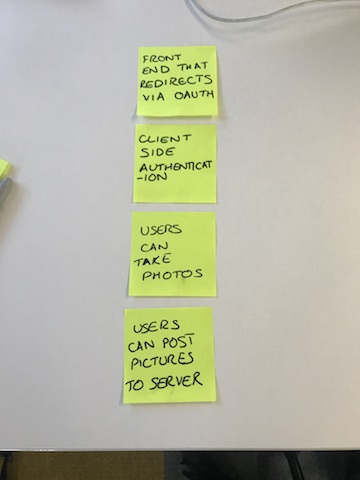 FRONT
END THAT
REDIRECTS
VIA OAUTH
CLIENT
SIDE
AUTHENTICAT
-ION
USERS
CAN
TAKE
PHOTOS
USERS
CAN POST
PICTURES
TO SERVER